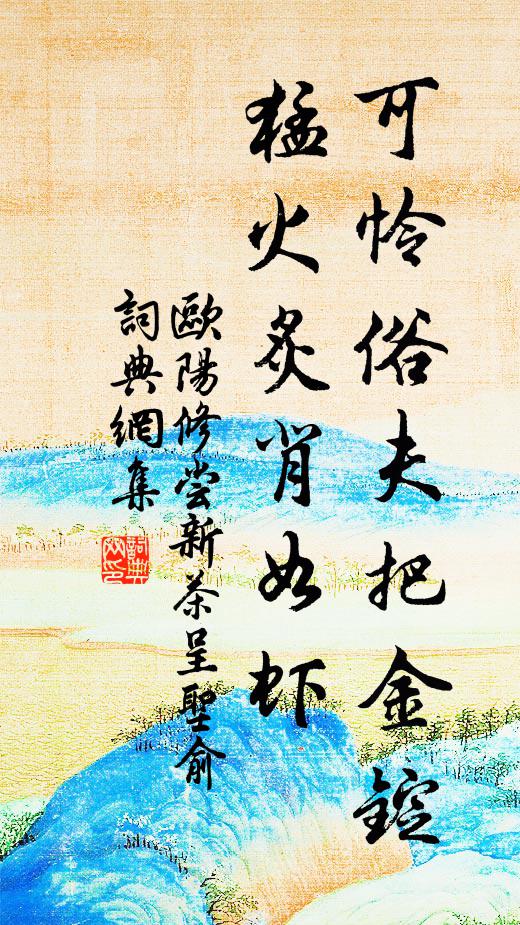 可怜俗夫把金錠
猛火炙背如虾
歐陽修尝新茶呈聖俞
詞典網集
詞典網印